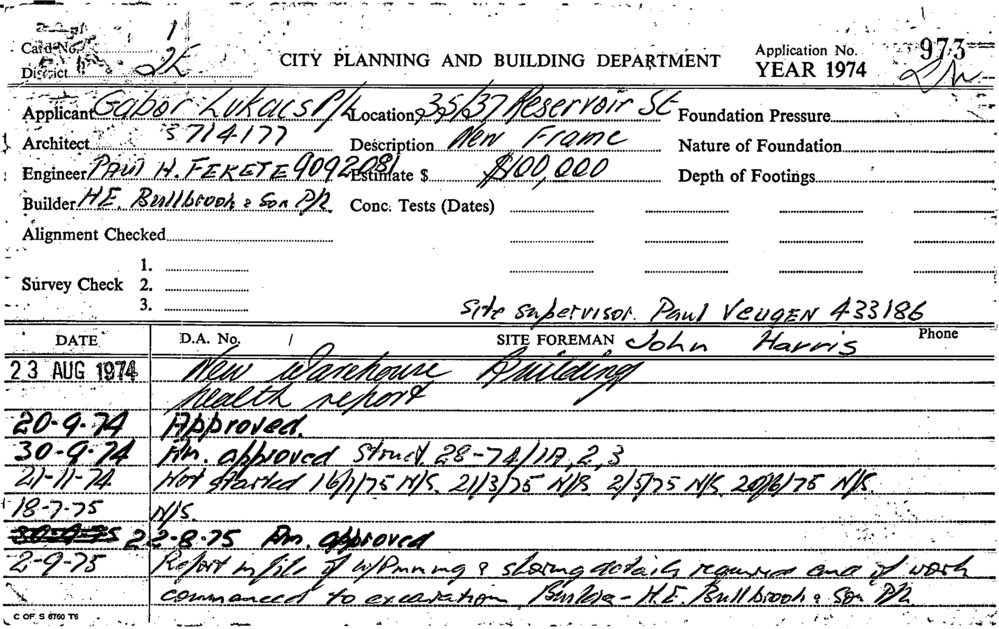 1
Card No.
District 2K
CITY PLANNING AND BUILDING DEPARTMENT
Application No. 973
YEAR 1974
Applicant Gabor Lukacs P/L Location 35/37 Reservoir St Foundation Pressure
Architect 3714177 Description New Frame Nature of Foundation
Engineer PAUL H. FEKETE 9092081 Estimate $ $100,000 Depth of Footings
Builder H.E. Bullbrook & Son P/L Conc. Tests (Dates)
Alignment Checked
Survey Check 1.
2.
3.
Site supervisor. Paul VEUGEN 433186
DATE D.A. No. / SITE FOREMAN John Harris Phone
23 AUG 1974 New Warehouse Building
health report
20-9-74 Approved.
30-9-74 Am. approved Struct. 28-74/1A, 2, 3
21-11-74 Not Started 16/1/75 N/S. 21/3/75 N/S 2/5/75 N/S. 20/6/75 N/S.
18-7-75 N/S.
22-8-75 Am. approved
2-9-75 Report on file of & shoring details required and of work
commenced to excavation Builder - H.E. Bullbrook & Son P/L
C OF S 6760 T6